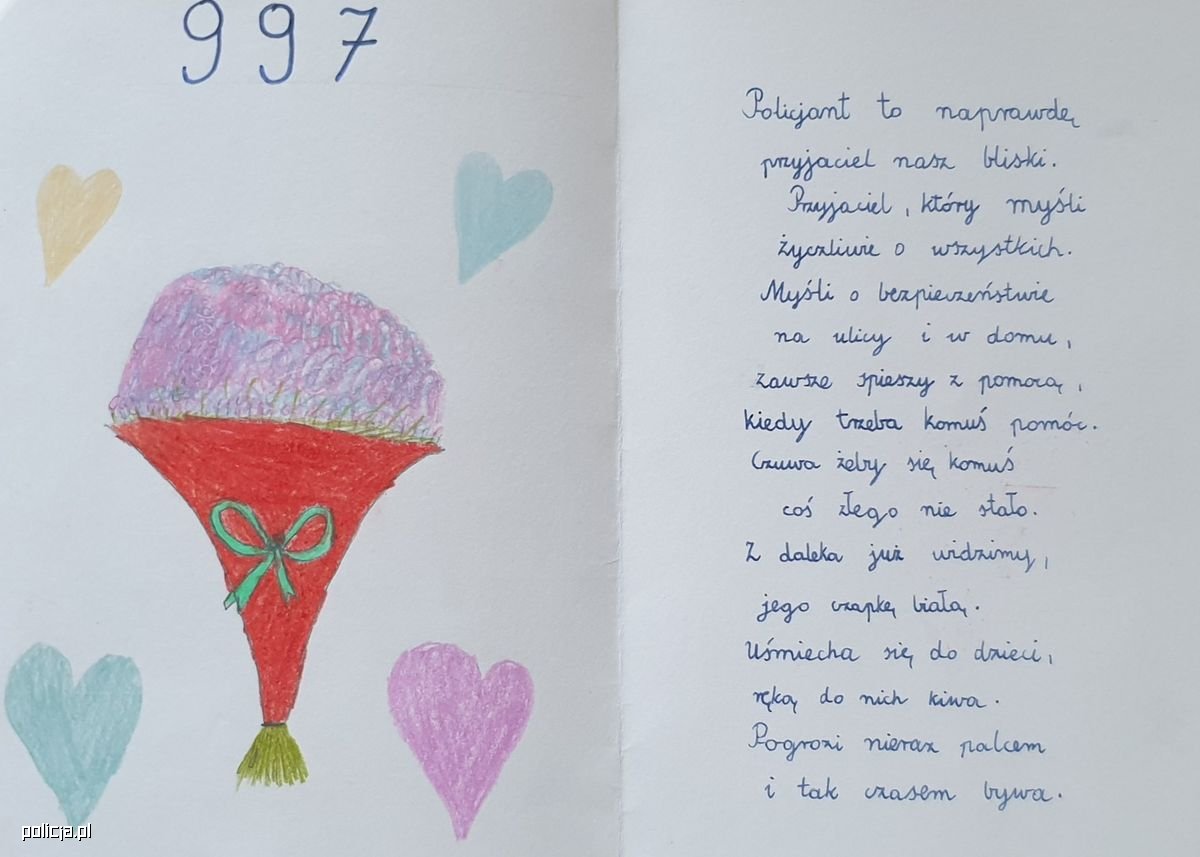 997
Policjant to naprawdę
przyjaciel nasz bliski.
Przyjaciel, który myśli
życzliwie o wszystkich.
Myśli o bezpieczeństwie
na ulicy i w domu,
zawsze spieszy z pomocą,
kiedy trzeba komuś pomóc.
Czuwa żeby się komuś
coś złego nie stało.
Z daleka już widzimy,
jego czapkę białą.
Uśmiecha się do dzieci,
ręką do nich kiwa.
Pogrozi nieraz palcem
i tak czasem bywa.
policja.pl